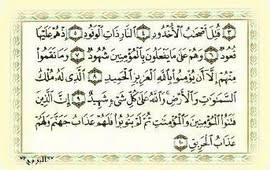 ٣ قُتِلَ أَصْحَٰبُ ٱلْأُخْدُودِ ٤ ٱلنَّارِ ذَاتِ ٱلْوَقُودِ ٥ إِذْ هُمْ عَلَيْهَا
قُعُودٌ ٦ وَهُمْ عَلَىٰ مَا يَفْعَلُونَ بِٱلْمُؤْمِنِينَ شُهُودٌ ٧ وَمَا نَقَمُوا۟
مِنْهُمْ إِلَّآ أَن يُؤْمِنُوا۟ بِٱللَّهِ ٱلْعَزِيزِ ٱلْحَمِيدِ ٨ ٱلَّذِى لَهُۥ مُلْكُ
ٱلسَّمَٰوَٰتِ وَٱلْأَرْضِ وَٱللَّهُ عَلَىٰ كُلِّ شَىْءٍ شَهِيدٌ ٩ إِنَّ ٱلَّذِينَ
فَتَنُوا۟ ٱلْمُؤْمِنِينَ وَٱلْمُؤْمِنَٰتِ ثُمَّ لَمْ يَتُوبُوا۟ فَلَهُمْ عَذَابُ جَهَنَّمَ وَلَهُمْ
عَذَابُ ٱلْحَرِيقِ ١٠
البروج